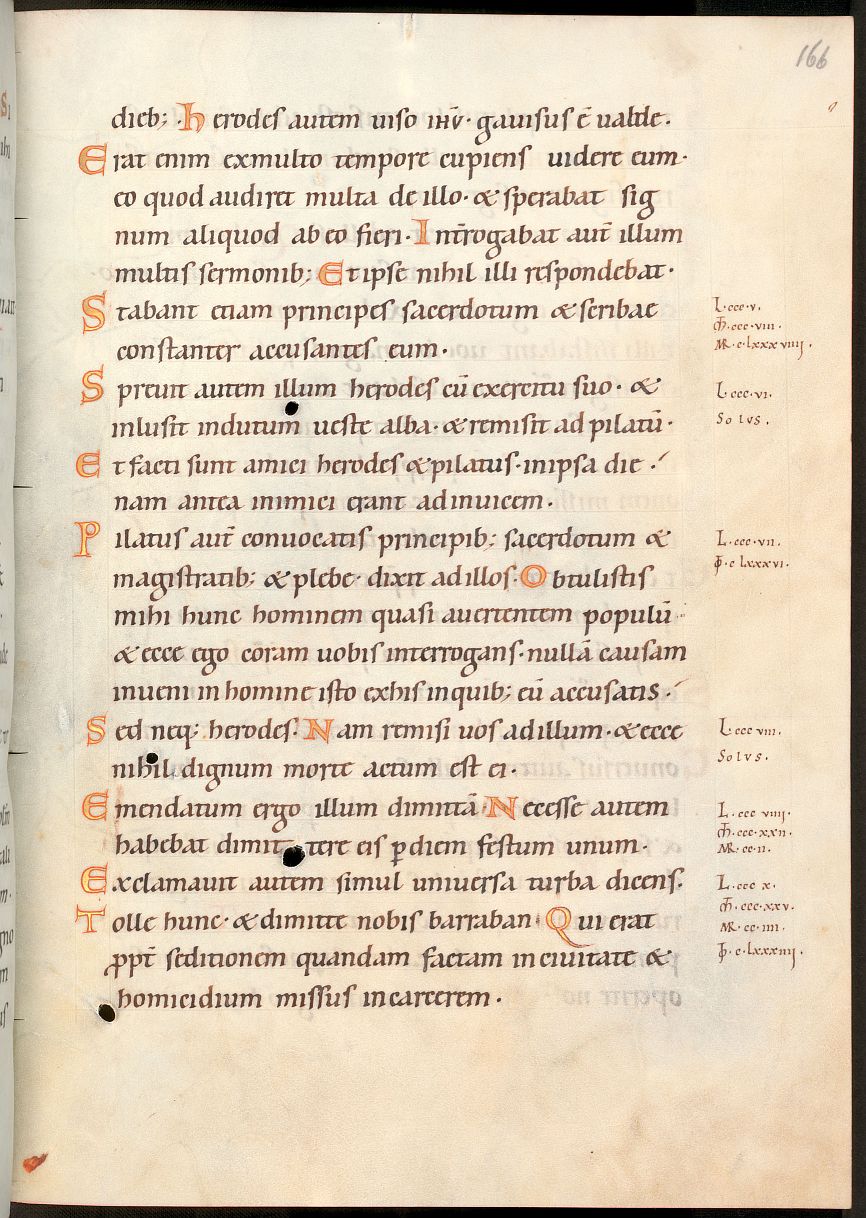 166
dieb; · herodes autem uiso ihv̅ · gauisus e̅ ualde.
Erat enim exmulto tempore cupiens uidere eum·
eo quod audiret multa de illo· & sperabat sig
num aliquod ab eo fieri· Int̅rogabat aut̅ illum
multis sermonib; Et ipse nihil illi respondebat·
Stabant etiam principes sacerdotum & scribae
constanter accusantes eum·
Spreuit autem illum herodes cu̅ exercitu suo· &
inlusit indutum ueste alba· & remisit ad pilatu̅·
Et facti sunt amici herodes & pilatus· inipsa die·
nam antea inimici erant adinuicem·
Pilatus aut̅ conuocatis principib; sacerdotum &
magistratib; & plebe· dixit adillos· Obtulistis
mihi hunc hominem quasi auertentem populu̅·
& ecce ego coram uobis interrogans· nulla̅ causam
inueni in homine isto exhis inquib; eu̅ accusatis·
Sed neq; herodes· Nam remisi uos adillum· & ecce
nihil dignum morte actum est ei·
Emendatum ergo illum dimitta̅· Necesse autem
habebat dimittere eis p̱ diem festum unum·
Exclamauit autem simul uniuersa turba dicens·
Tolle hunc· & dimitte nobis barraban· Qui erat
ppt̅ seditionem quandam factam inciuitate &
homicidium missus incarcerem·
L·ccc·v·
m̅·ccc·viii·
MR·c·lxxxviiii·
L·ccc·vi·
Solvs·
L·ccc·vii·
p̅·c lxxxvi·
L·ccc viii·
Solvs·
L·ccc viiii·
m̅·ccc·xxii·
MR·cc·ii·
L·ccc x·
m̅·ccc·xxv·
MR·cc·iiii·
p̅·c·lxxxiiii·